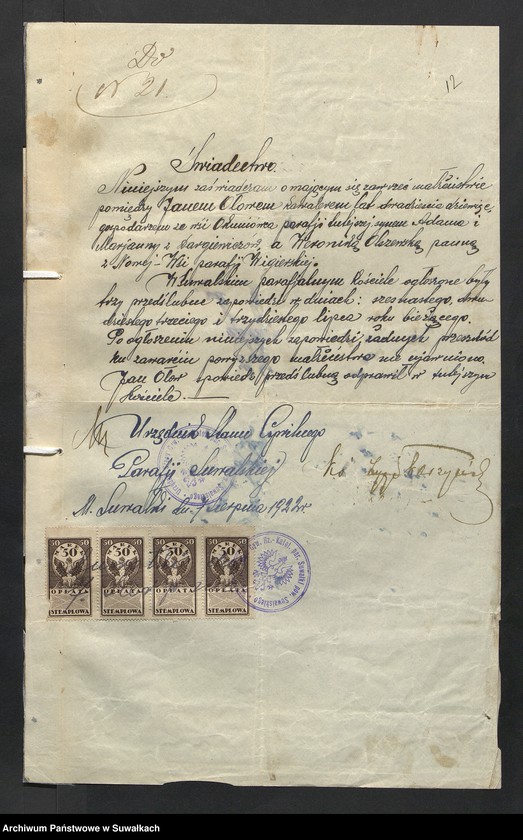 Do
N 21.
12
Świadectwo.
Niniejszym zaświadczam o mającym się zawrzeć małżeństwie
pomiędzy Janem Ołowem kawalerem lat dwadzieścia dziewięć
gospodarzem ze wsi Okuniowca parafji tutejszej synem Adama i
Marjanny z Jurgiewiczów, a Weroniką Olszewską panną
z Nowej-Wsi parafji Wigierskiej.
W Suwalskim parafjalnym Kościele ogłoszone były
trzy przedślubne zapowiedzi w dniach: szesnastego, dwu-
dziestego trzeciego i trzydziestego lipca roku bieżącego.
Po ogłoszeniu niniejszych zapowiedzi, żadnych przeszkód
ku zawarciu powyższego małżeństwa nie ujawniono.
Jan Ołow spowiedź przedślubną odprawił w tutejszym
Kościele.
Urzędnik Stanu Cywilnego
Parafji Suwalskiej
M. Suwałki dn. 1 Sierpnia 1922 r.
Ks.
50 50 50 50 50 50 50 50
50 50 50 50
OPŁATA OPŁATA OPŁATA OPŁATA
STEMPLOWA STEMPLOWA STEMPLOWA STEMPLOWA
Rz.-Katol. par. Suwałki pow. Suwalskiego
Archiwum Państwowe w Suwałkach